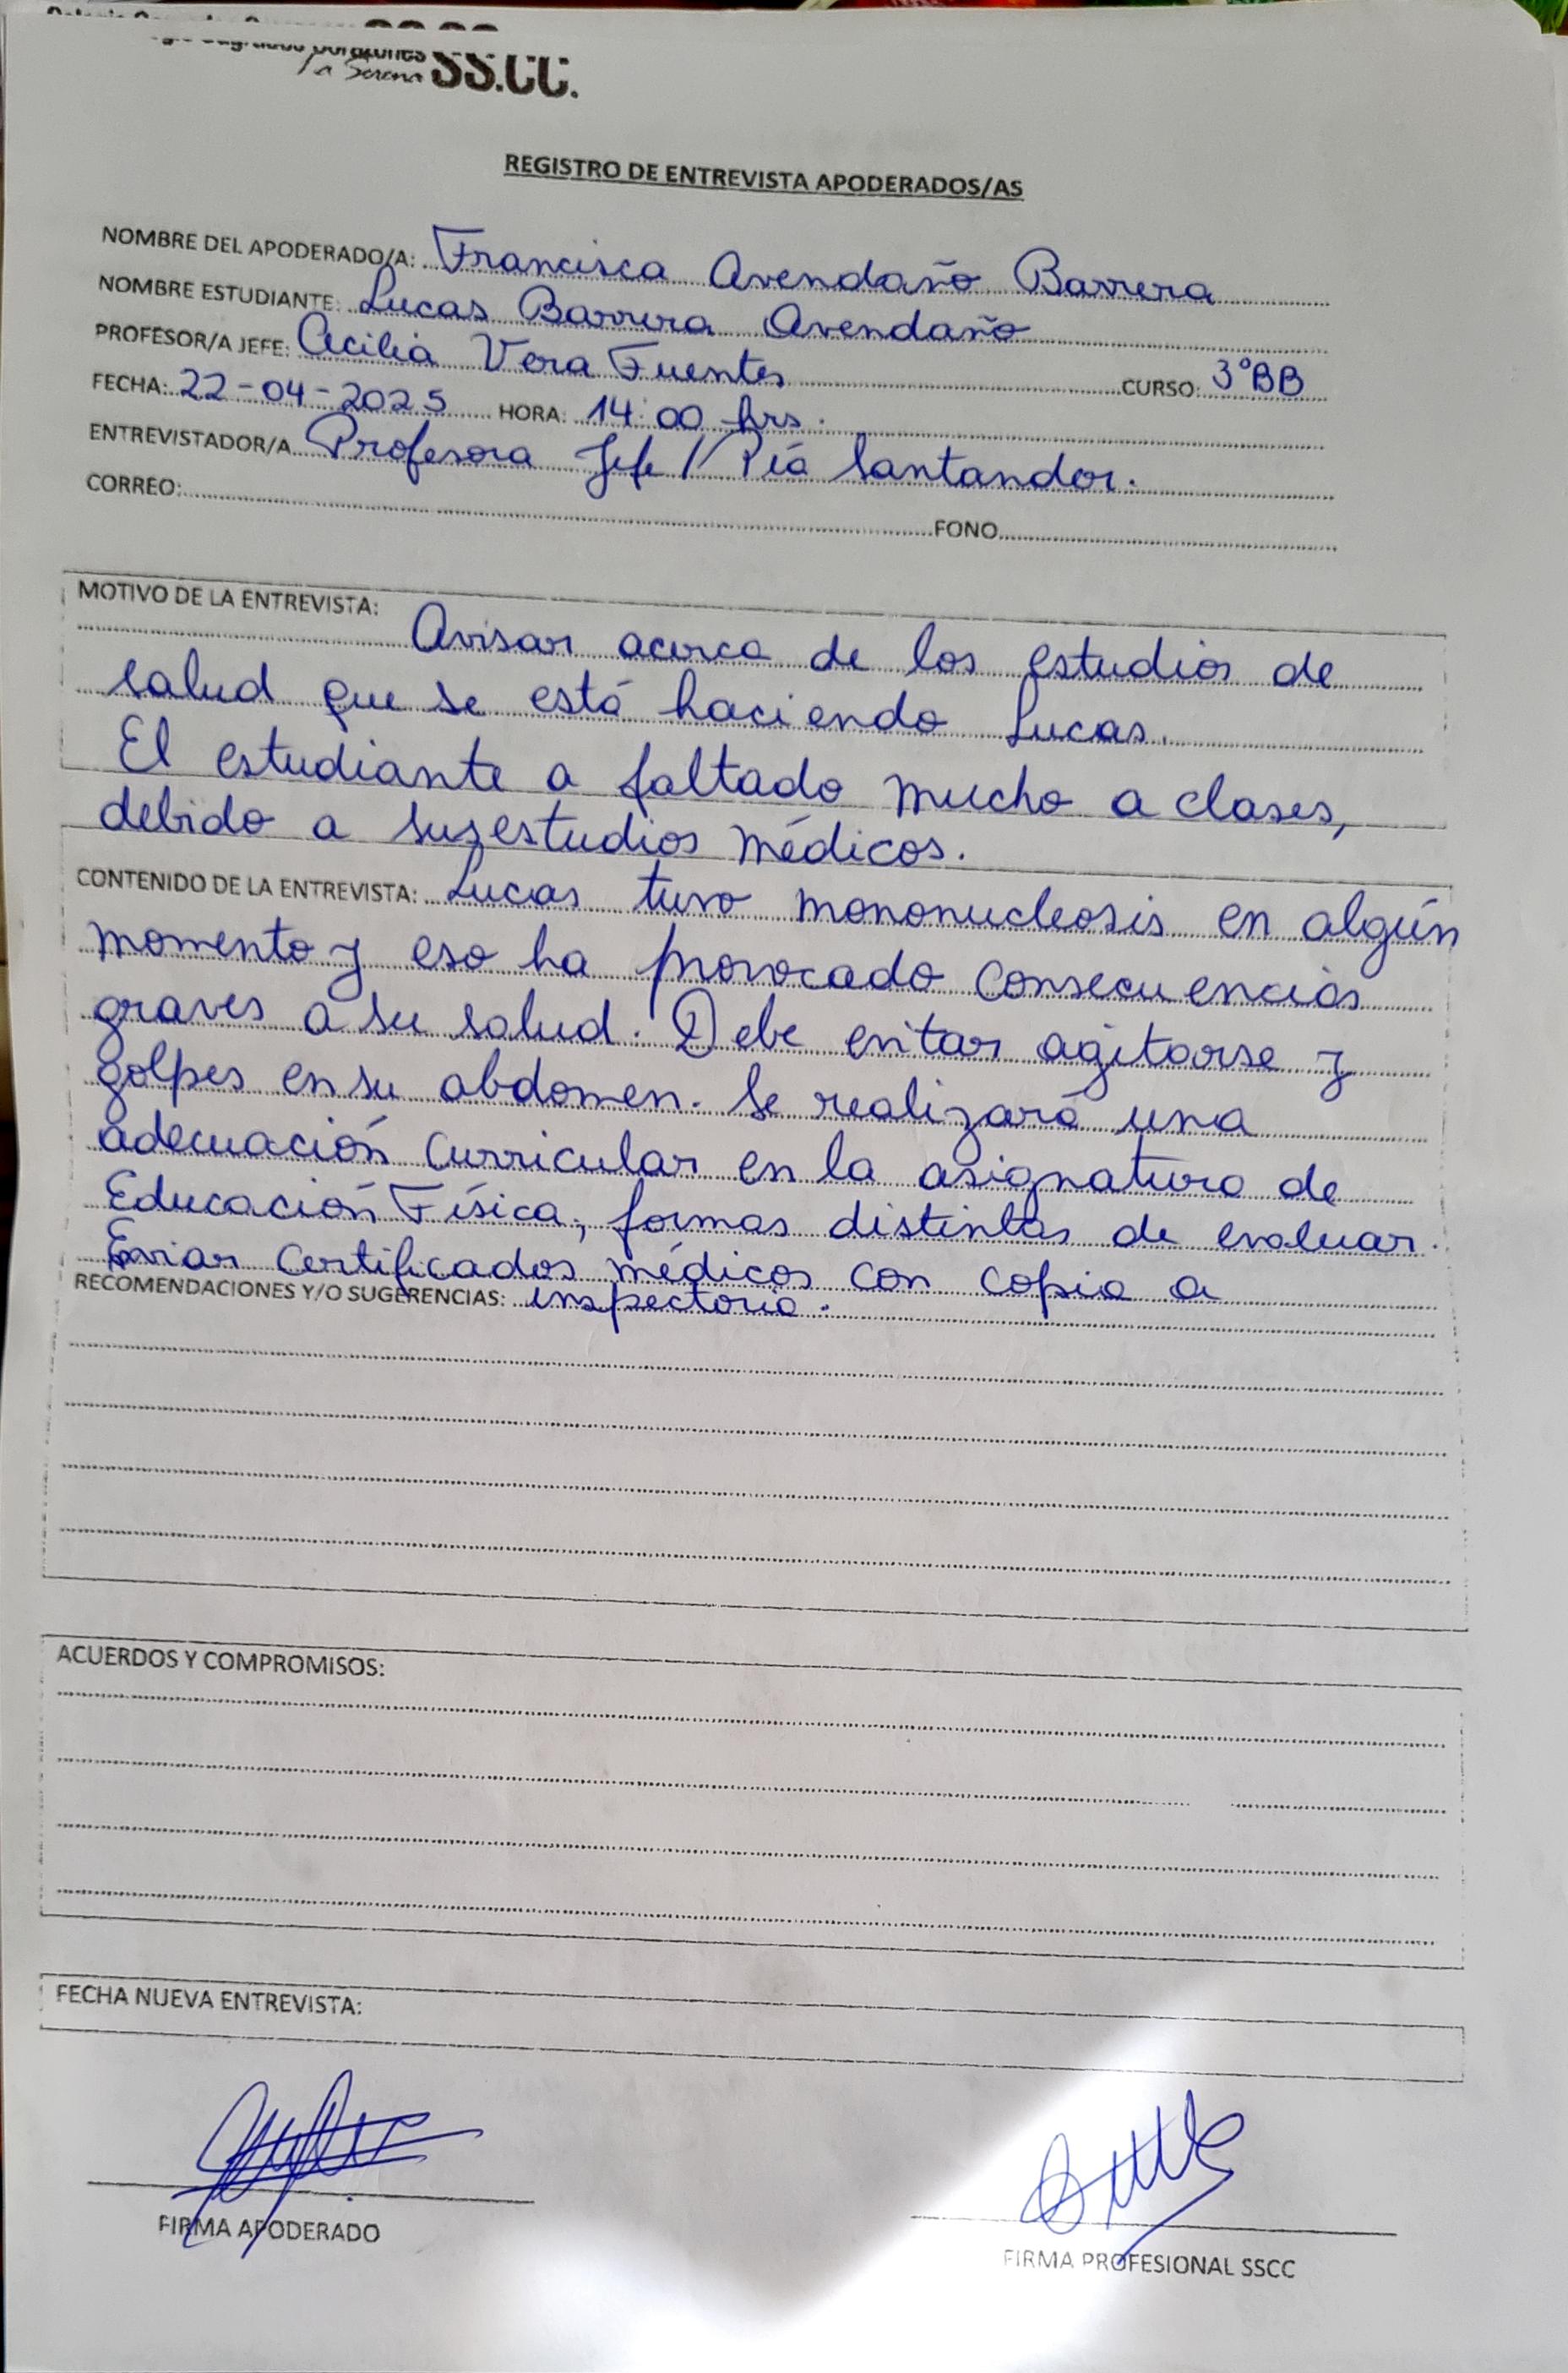 Sagrados Corazones
La Serena SS.CC.
REGISTRO DE ENTREVISTA APODERADOS/AS
NOMBRE DEL APODERADO/A: Francisca Avendaño Barrera
NOMBRE ESTUDIANTE: Lucas Barrera Avendaño
PROFESOR/A JEFE: Cecilia Vera Fuentes CURSO: 3°BB
FECHA: 22-04-2025 HORA: 14:00 hrs.
ENTREVISTADOR/A Profesora Jefe / Pía Santander.
CORREO: FONO
MOTIVO DE LA ENTREVISTA: Avisar acerca de los estudios de
salud que se está haciendo Lucas.
El estudiante a faltado mucho a clases,
debido a sus estudios médicos.
CONTENIDO DE LA ENTREVISTA: Lucas tuvo mononucleosis en algún
momento y eso ha provocado consecuencias
graves a su salud. Debe evitar agitarse y
golpes en su abdomen. Se realizará una
adecuación curricular en la asignatura de
Educación Física, formas distintas de evaluar.
Enviar certificados médicos con copia a
RECOMENDACIONES Y/O SUGERENCIAS: inspectoria.
ACUERDOS Y COMPROMISOS:
FECHA NUEVA ENTREVISTA:
FIRMA APODERADO
FIRMA PROFESIONAL SSCC